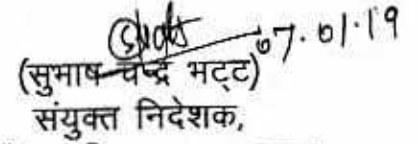 07.01.19
(सुभाष चन्द्र भट्ट)
संयुक्त निदेशक,